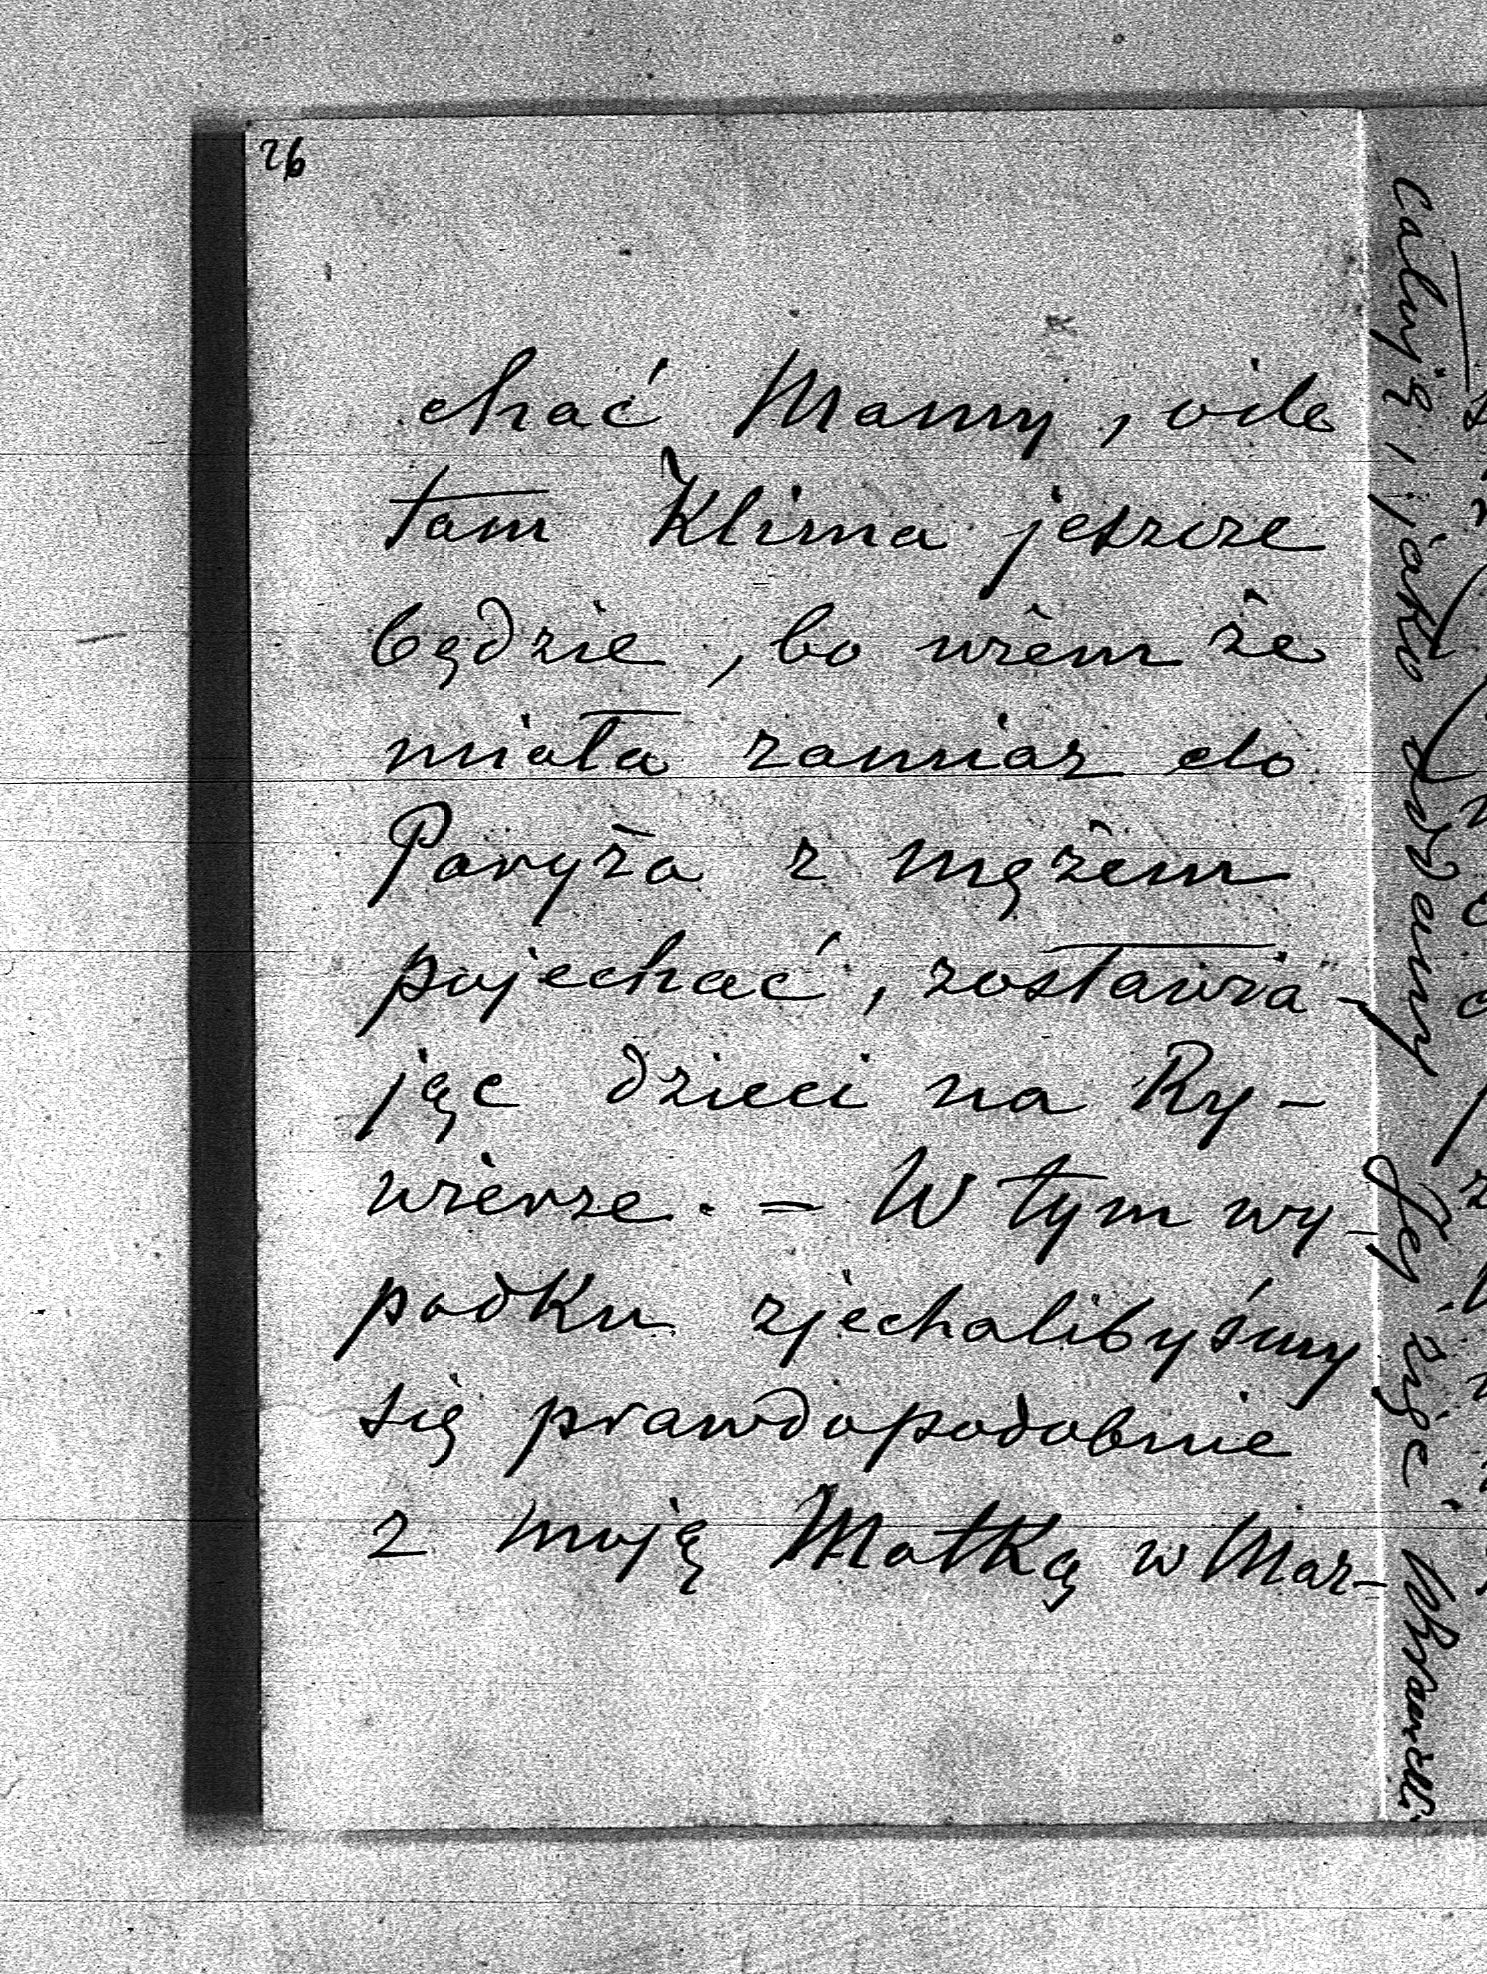 26
chać Mamy, o ile
tam Klima jeszcze
będzie, bo wiem że
miała zamiar do
Paryża z mężem
pojechać, zostawia-
jąc dzieci na Ry-
wierze. - W tym wy-
padku zjechalibyśmy
się prawdopodobnie
z moją Matką w Mar-
całuję, jako oddany Jej zięć